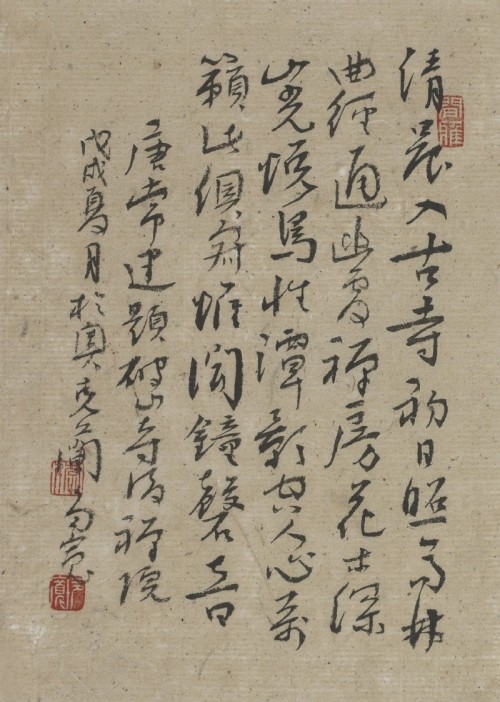 清晨入古寺初日照高林
曲徑通幽處禪房花木深
山光悦鳥性潭影空人心萬
籟此俱寂惟聞鐘磬音
唐常建題破山寺後禪院
戊戌夏月於奥克蘭